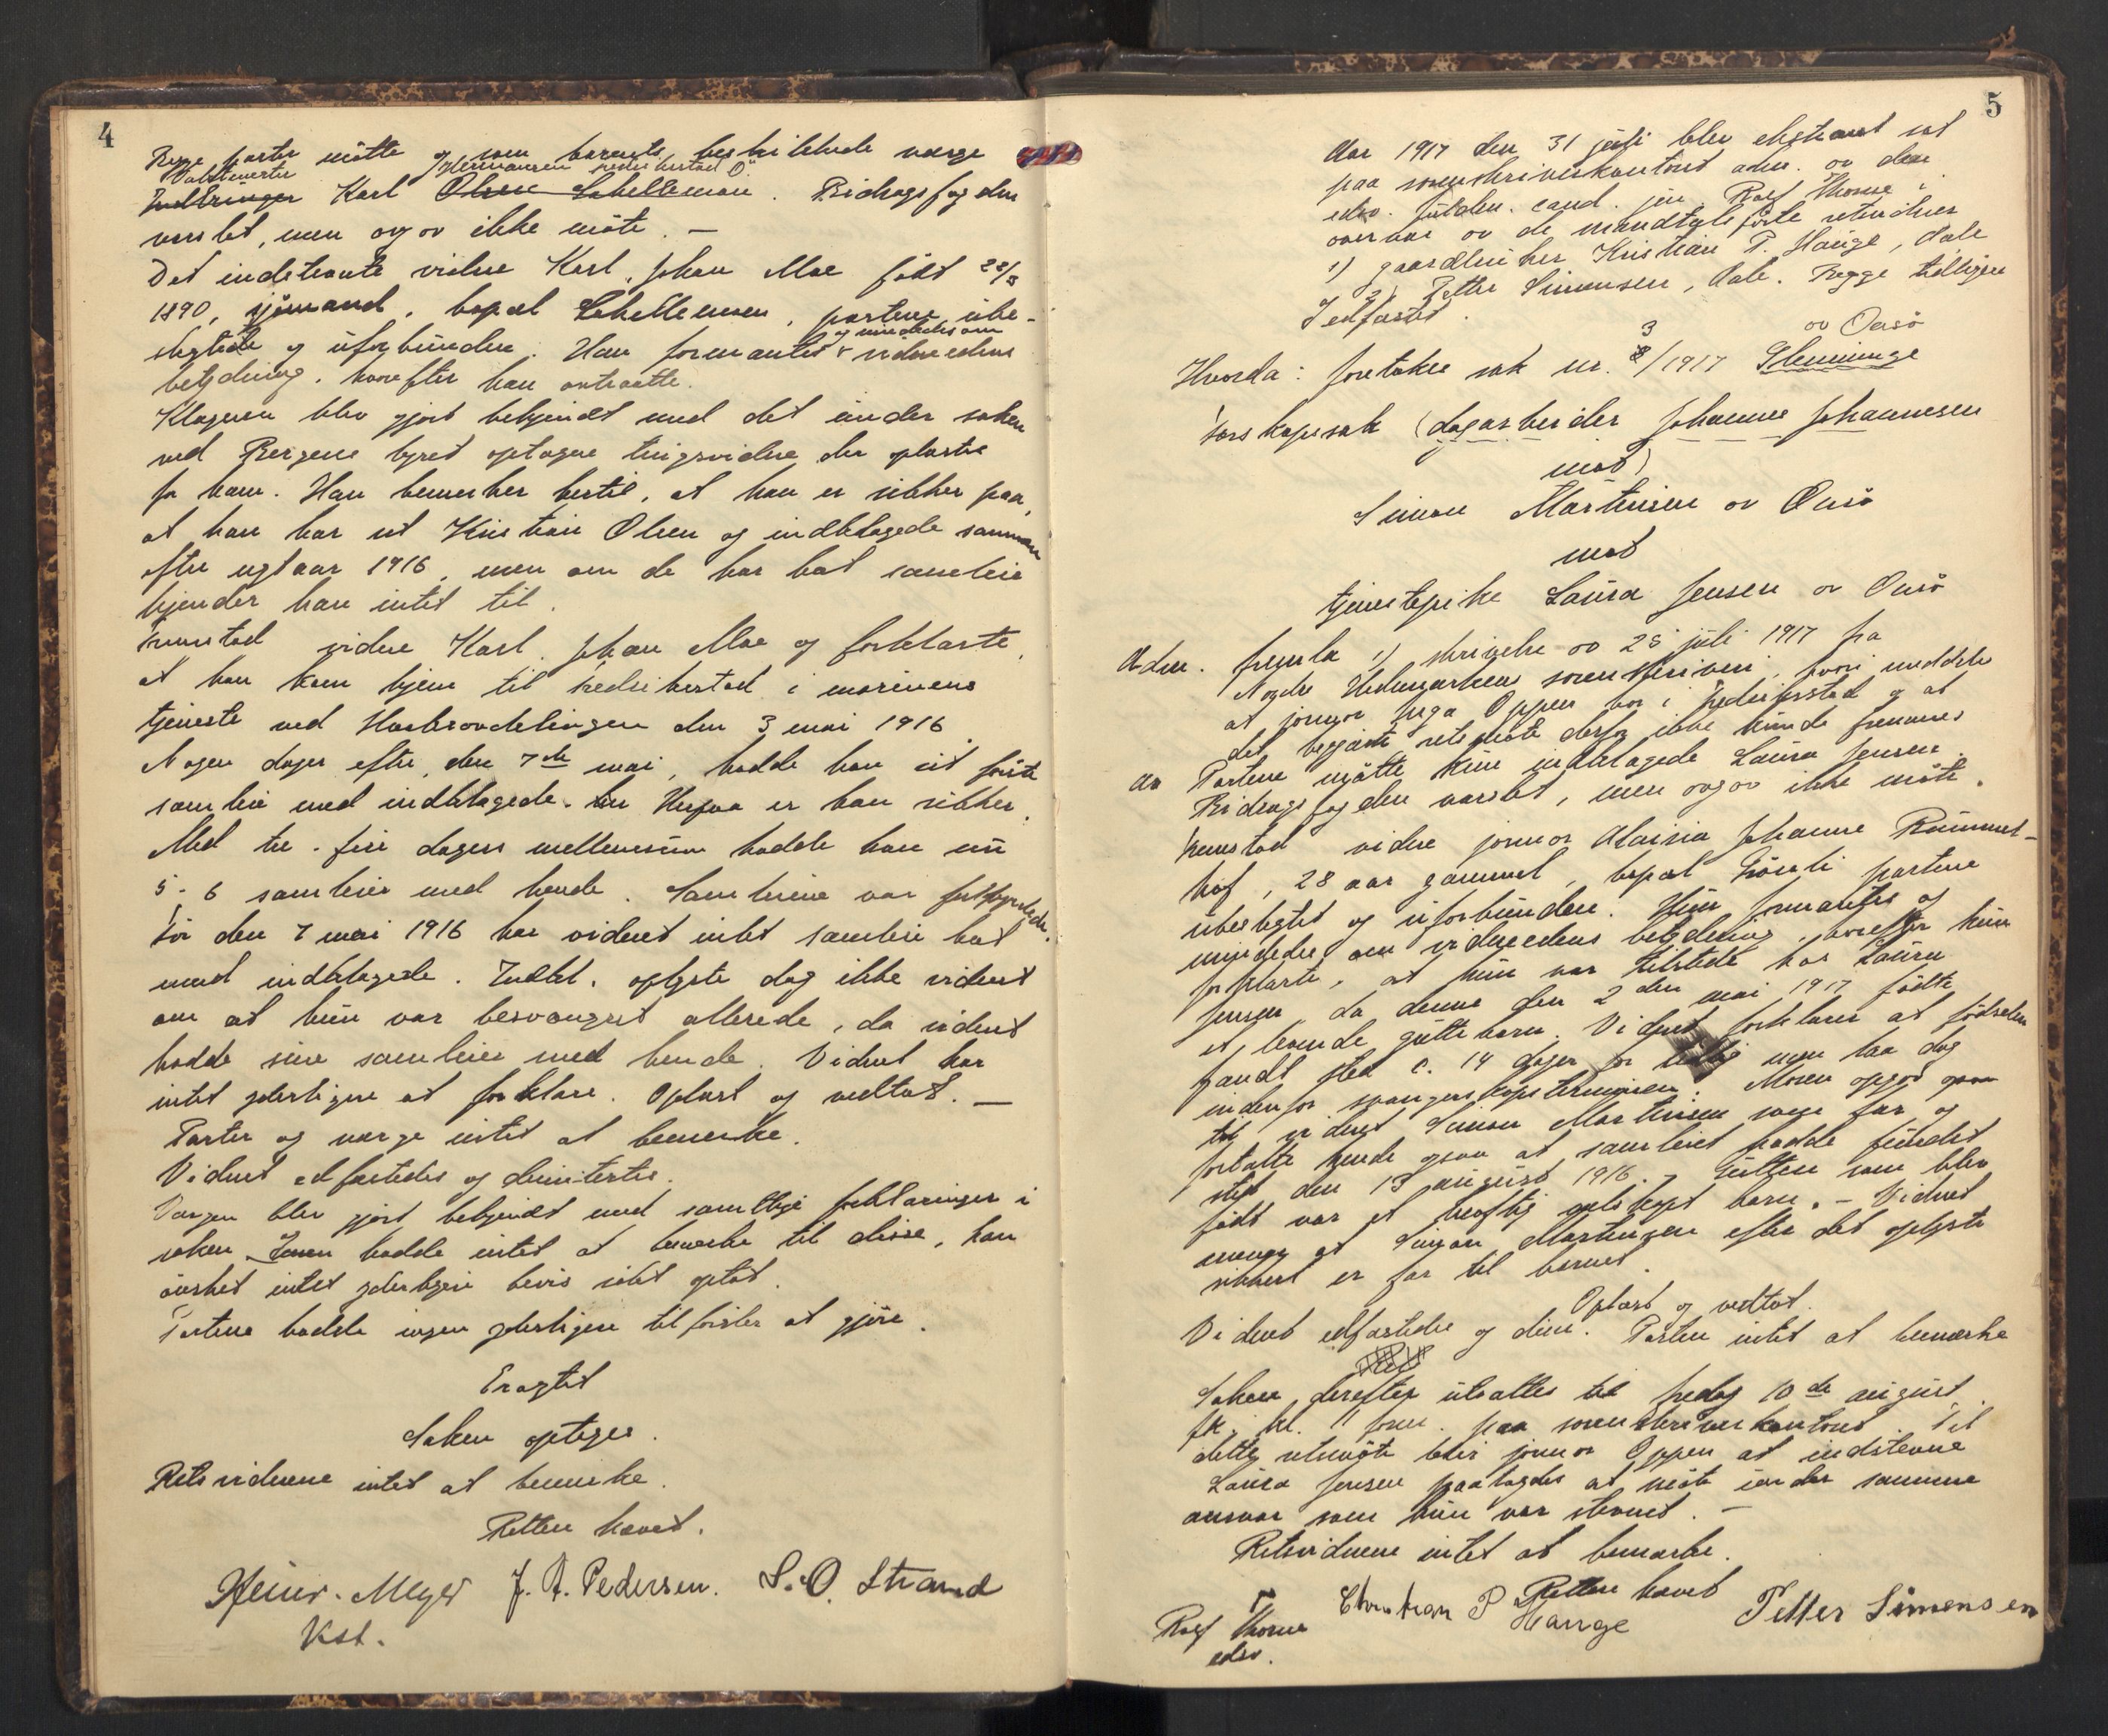 4
Begge parter mötte og som barnets beskikkede værge
Hermansen Fredrikstad Ö
Karl Olsen Lahellemoen. Bidragsfogden
varslet, men ogsaa ikke möte. —
Det indstevnte vidne Karl Johan Moe födt
1890, sjömand, bopæl Lahellemoen, partene ube-
og mindedes om
slegtede og uforbunden. Han formantes vidneedens
betydning, hvorefter han avtraatte.
Klageren blev gjort bekjendt med det under saken
ved Bergens byret optagne tingsvidne der oplæstes
for ham. Han bemerker hertil, at han er sikker paa,
at han har set Kristian Olsen og indklagede sammen
efter nytaar 1916, men om de har hat samleie
kjender han intet til.
Fremstod vidne Karl Johan Moe og forklarte,
at han kom hjem til Fredrikstad i marinens
tjeneste ved Havneavdelingen den 3 mai 1916.
Nogen dager efter, den 7de mai, hadde han sit förste
samleie med indklagede. Herpaa er han sikker.
Med tre-fire dagers mellemrum hadde han nu
5-6 samleier med hende. Samleiene var fuldbyrdede.
För den 7 mai 1916 har vidnet intet samleie hat
med indklagede. Indkl. oplyste dog ikke vidnet
om at hun var besvangret allerede, da vidnet
hadde sine samleier med hende. Vidnet har
intet yderligere at forklare. Oplæst og vedtat. —
Parter og værge intet at bemerke.
Vidnet edfæstedes og dimitertes.
Værgen blev gjort bekjendt med samtlige forklaringer i
saken. hadde intet at bemerke til disse, han
önsket intet yderligere bevis sökt optat.
Partene hadde ingen yderligere tilförsler at gjöre.
Eragtet
Saken optages.
Retsvidnene intet at bemerke.
Retten hævet.
Heinr. Meyer J. A. Pedersen. S. O. Strand
Kst.
5
Aar 1917 den 31 juli blev ekstraret sat
paa sorenskriverkontoret adm. av den
edsv. fuldm. cand. jur. Rolf Thorne i
overvær av de mandtalsförte retsvidner
1) gaardbruker Kristian P. Hauge, Aale
2) Petter Simensen, Aale. Begge tidligere
Edfæstet.
3 av Onsö
Hvorda: foretokes sak nr. 8/1917 Glemminge
farskapssak (dagarbeider Johannes Johannesen
mot)
Simon Martinsen av Onsö
mot
tjenestepike Laura Jensen av Onsö
Adm. fremla 1) skrivelse av 28 juli 1917 fra
Nordre Hedemarkens sorenskriveri, hvori meddeles
at jormor Inga Oppen bor i Fredrikstad og at
det begjærte retsmöte derfor ikke kunde fremmes
Av Partene mötte kun indklagede Laura Jensen.
Bidragsfogden varslet, men ogsaa ikke möte.
Fremstod vidne jormor Alvina Johanne Rummel-
hof, 28 aar gammel, bopæl partene
ubeslegtet og uforbunden. Hun formantes og
mindedes om vidneedens betydning, hvorefter hun
forklarte, at hun var tilstede hos Laura
Jensen, da denne den 2den mai 1917 födte
et levende guttebarn. Vidnet forklarer at födselen
fandt sted c. 14 dager for tidlig men laa dog
indenfor svangerskapsterminen. Moren opgav ogsaa
til vidnet Simon Martinsen som far og
fortalte hende ogsaa at samleiet hadde fundet
sted den 13 august 1916. Gutten som blev
födt var et kraftig velskapt barn. — Vidnet
mener at Simon Martinsen efter det oplyste
sikkert er far til barnet.
Oplæst og vedtat.
Vidnet edfæstedes og dim. Parten intet at bemærke
Saken derefter utsattes til fredag 10de august
fk. kl. 11 form. paa sorenskriverkontoret. Til
dette retsmöte blir jormor Oppen at indstevne
Laura Jensen paalagdes at möte under samme
ansvar som hun var stevnet. —
Retsvidnene intet at bemærke.
Retten hævet
Rolf Thorne Christian P Hauge Petter Simensen
edsv.